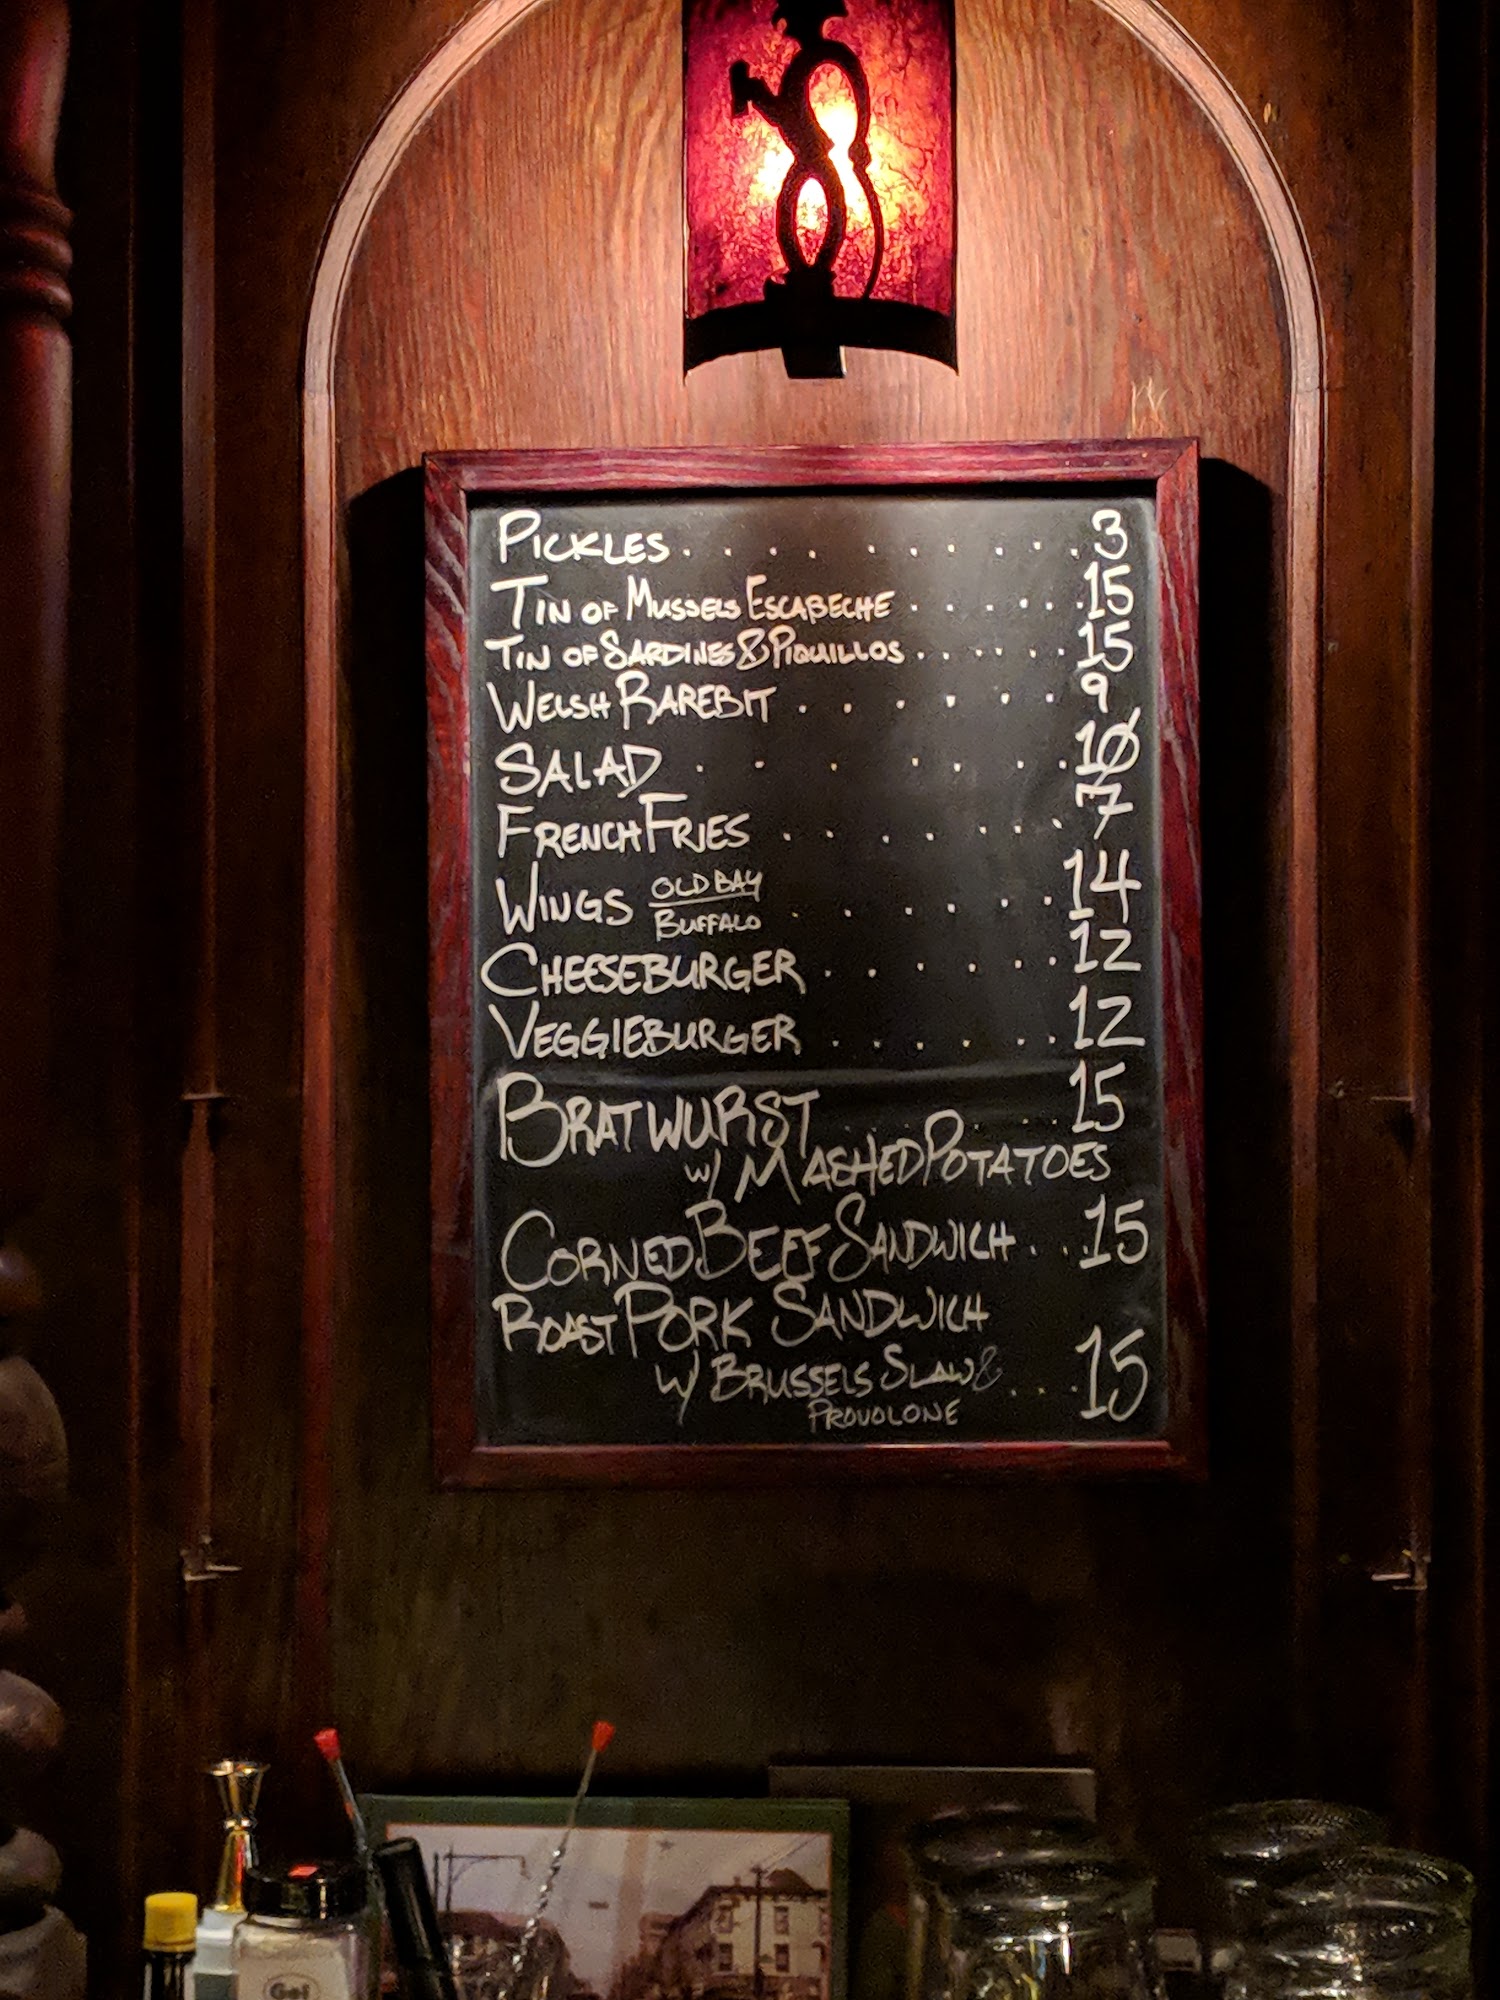 PICKLES . . . . . . . . . . . 3
TIN OF MUSSELS ESCABECHE . . . . . . 15
TIN OF SARDINES & PIQUILLOS . . . . . . 15
WELSH RAREBIT . . . . . . . 9
SALAD . . . . . . . . 10
FRENCH FRIES . . . . . . . . 7
WINGS OLD BAY
BUFFALO . . . . . . . 14
CHEESEBURGER . . . . . . . 12
VEGGIEBURGER . . . . . . 12
BRATWURST . . . . . . 15
W/ MASHED POTATOES
CORNED BEEF SANDWICH . . . 15
ROAST PORK SANDWICH
W/ BRUSSELS SLAW & . . . . 15
PROVOLONE
Gel